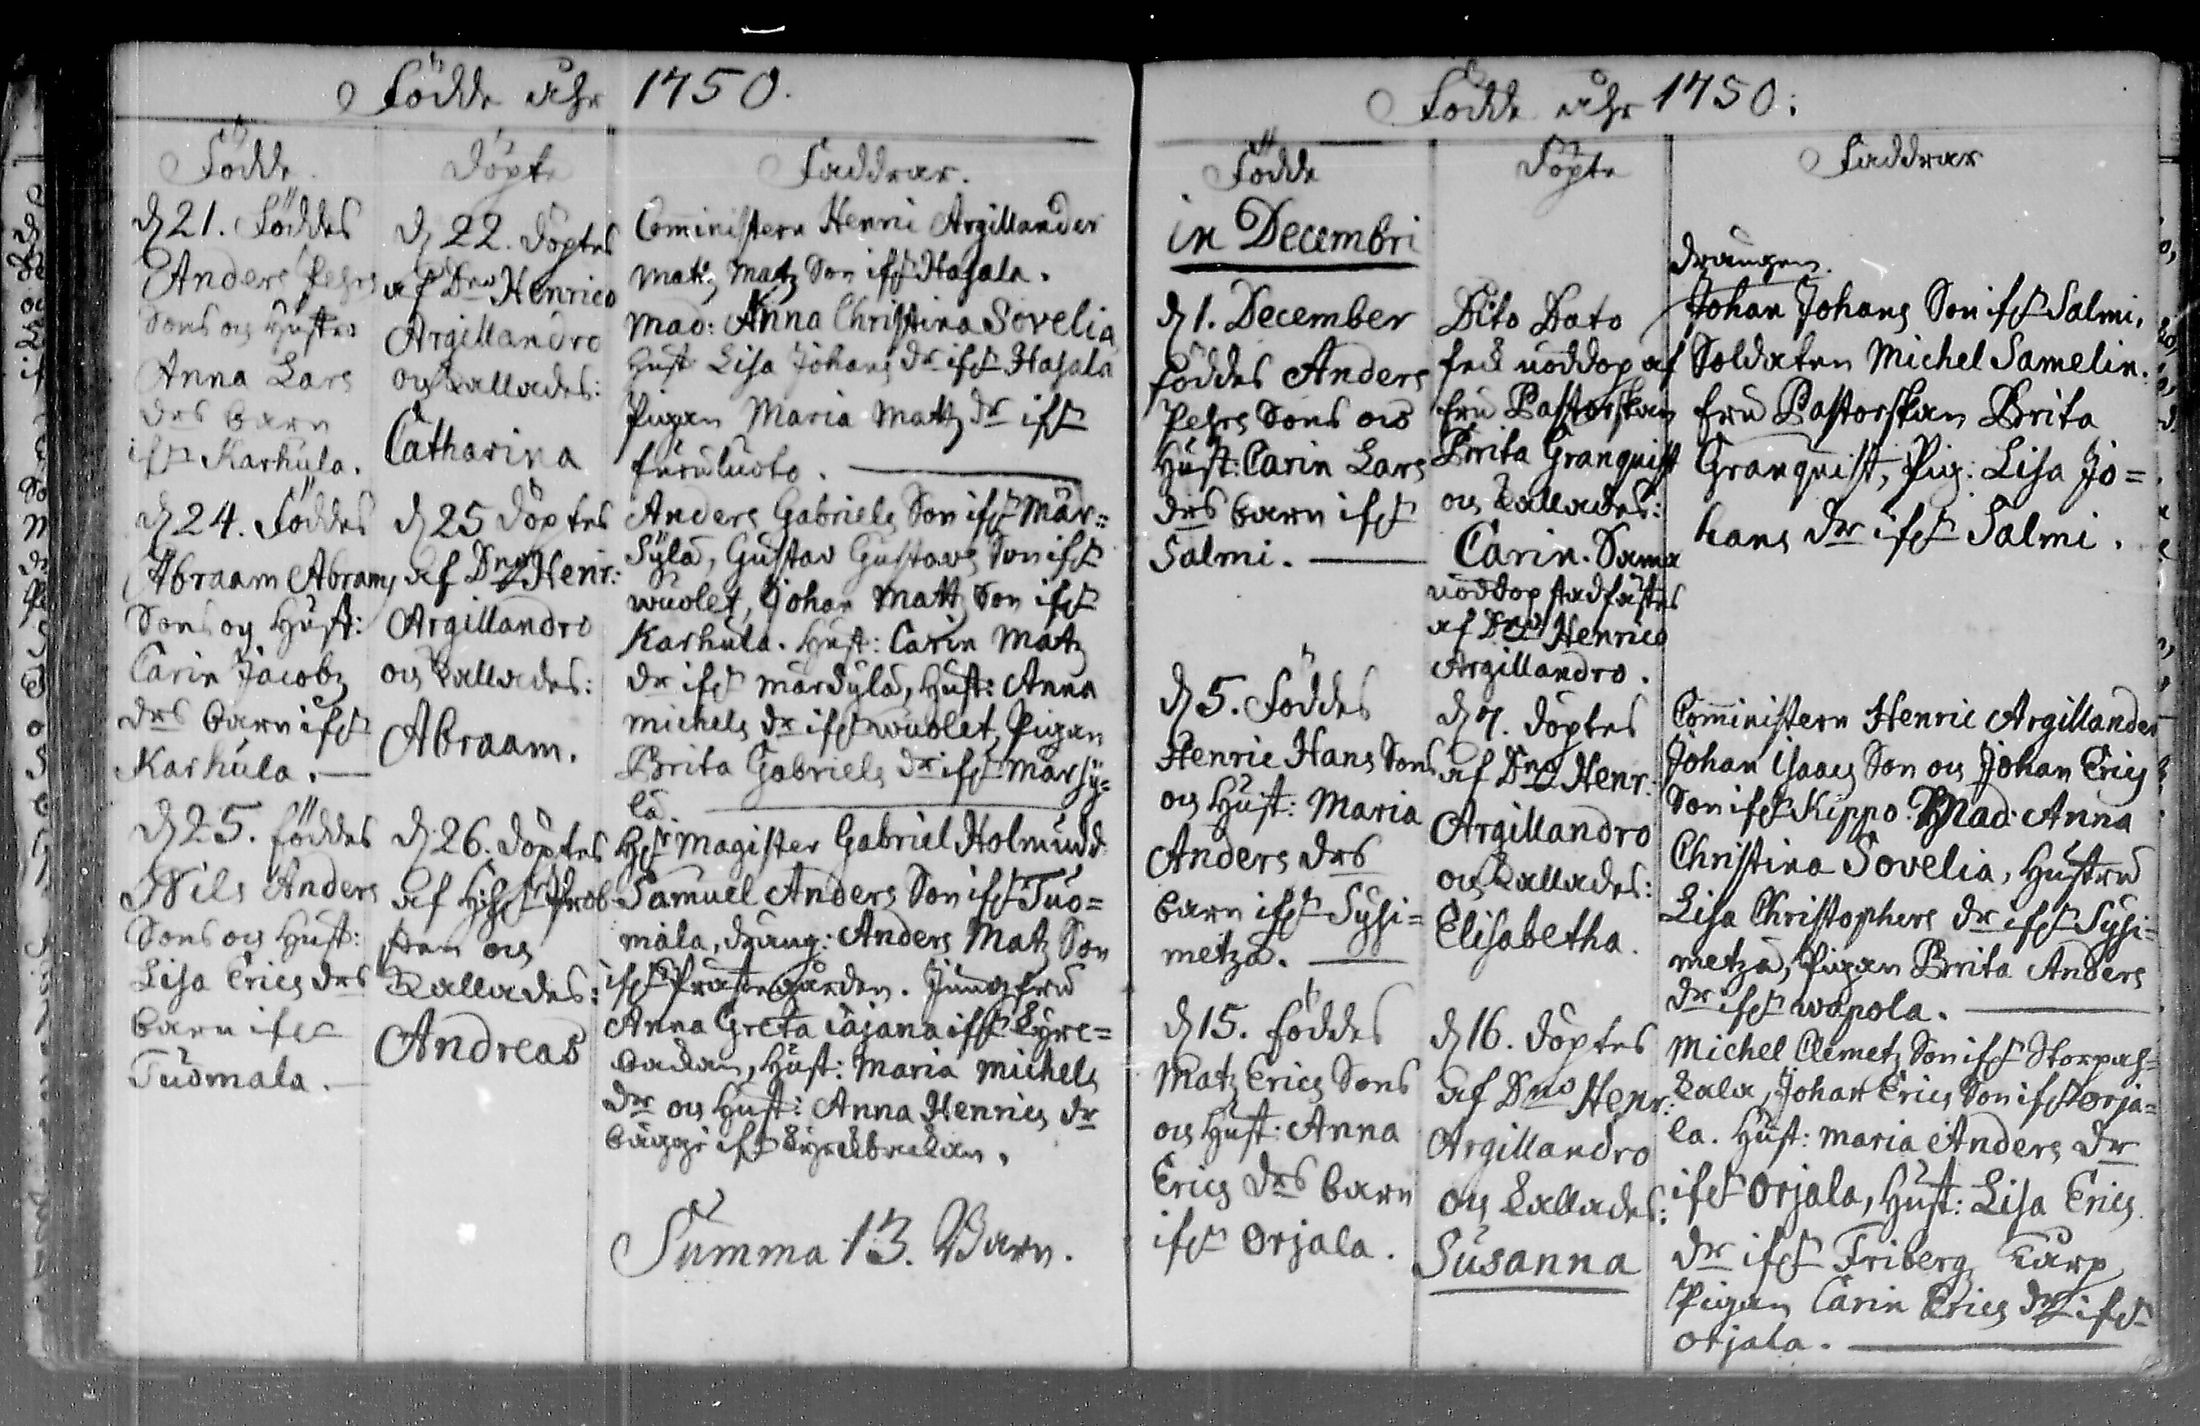 Födde åhr 1750.
Födde
Döpte
Faddrar.
d 21. Föddes
Anders Pehrs
Sons och Hustro
Anna Lars
drs barn
ifr Karhula.
d 22. Döptes
af Dno Henrico
Argillandro
och Kallades:
Catharina
Comministern Henric Argillander
Matz Matz Son ifr Hasala.
Mad: Anna Christina Sovelia
Hust Lisa Johans dr ifr Hasala
Pigan Maria Matz dr ifr
furuluoto.
d 24. Föddes
Abraam Abrams
Sons och Hust:
Carin Jacobz
drs barn ifr
Karhula.
d 25 Döptes
af Dno Henr:
Argillandro
och Kallades:
Abraam.
Anders Gabriels Son ifr Mär=
sylä, Gustav Gustavs Son ifr
wuolet, Johan Matz Son ifr
Karhula. Hust: Carin Matz
dr ifr märdylä, Hust: Anna
Michels dr ifr wuolet, Pigan
Brita Gabriels dr ifr Marsy=
lä.
d 25. föddes
Nils Anders
Sons och Hust:
Lisa Erics drs
barn ifr
Tuomala.
d. 26. Döptes
af H:r Prob
sten och
Kallades:
Andreas
Hr Magister Gabriel Holmudd
Samuel Anders Son ifr Tuo=
mala, dräng: Anders Matz Son
ifr Prästegården. Jungfru
Anna Greta Cajana ifr Kyrc=
backan, Hust: Maria Michels
dr och Hust: Anna Henrics dr
bägge ifr Kyrckbackan.
Summa 13. Barn.
Födde åhr 1750:
Födde
Döpte
Faddrar
in Decembri
d 1. December
föddes Anders
Pehrs Sons och
Hust: Carin Lars
drs barn ifr
Salmi.
Dito Dato
fick nöddop af
fru Pastorskan
Brita Granquist
och Kallades:
Carin. Sama
nöddop stadfästes
af Dno Henrico
Argillandro.
Drängen
Johan Johans Son ifr Salmi.
Soldaten Michel Samelin.
fru Pastorskan Brita
Granquist, Pig: Lisa Jo=
hans dr ifr Salmi.
d 5. Föddes
Henric Hans Sons
och Hust: Maria
Anders drs
barn ifr Sysi=
metzä.
d 7. Döptes
af Dno Henr:
Argillandro
och Kallades:
Elisabetha.
Comministern Henric Argillander
Johan Isaacs Son och Johan Erics
Son ifr Kippo. Mad: Anna
Christina Sovelia, Hustru
Lisa Christophers dr ifr Sysi=
metzä, Pigan Brita Anders
dr ifr wapola.
d 15. föddes
Matz Erics Sons
och Hust: Anna
Erics drs barn
ifr Orjala.
d 16. Döptes
af Dno Henr:
Argillandro
och Kallades:
Susanna
Michel Clemetz Son ifr Storpas=
kala, Johan Erics Son ifr Orja=
la. Hust: Maria Anders dr
ifr Orjala, Hust: Lisa Erics
dr ifr Friberg Torp
Pigan Carin Erics dr ifr
Orjala.